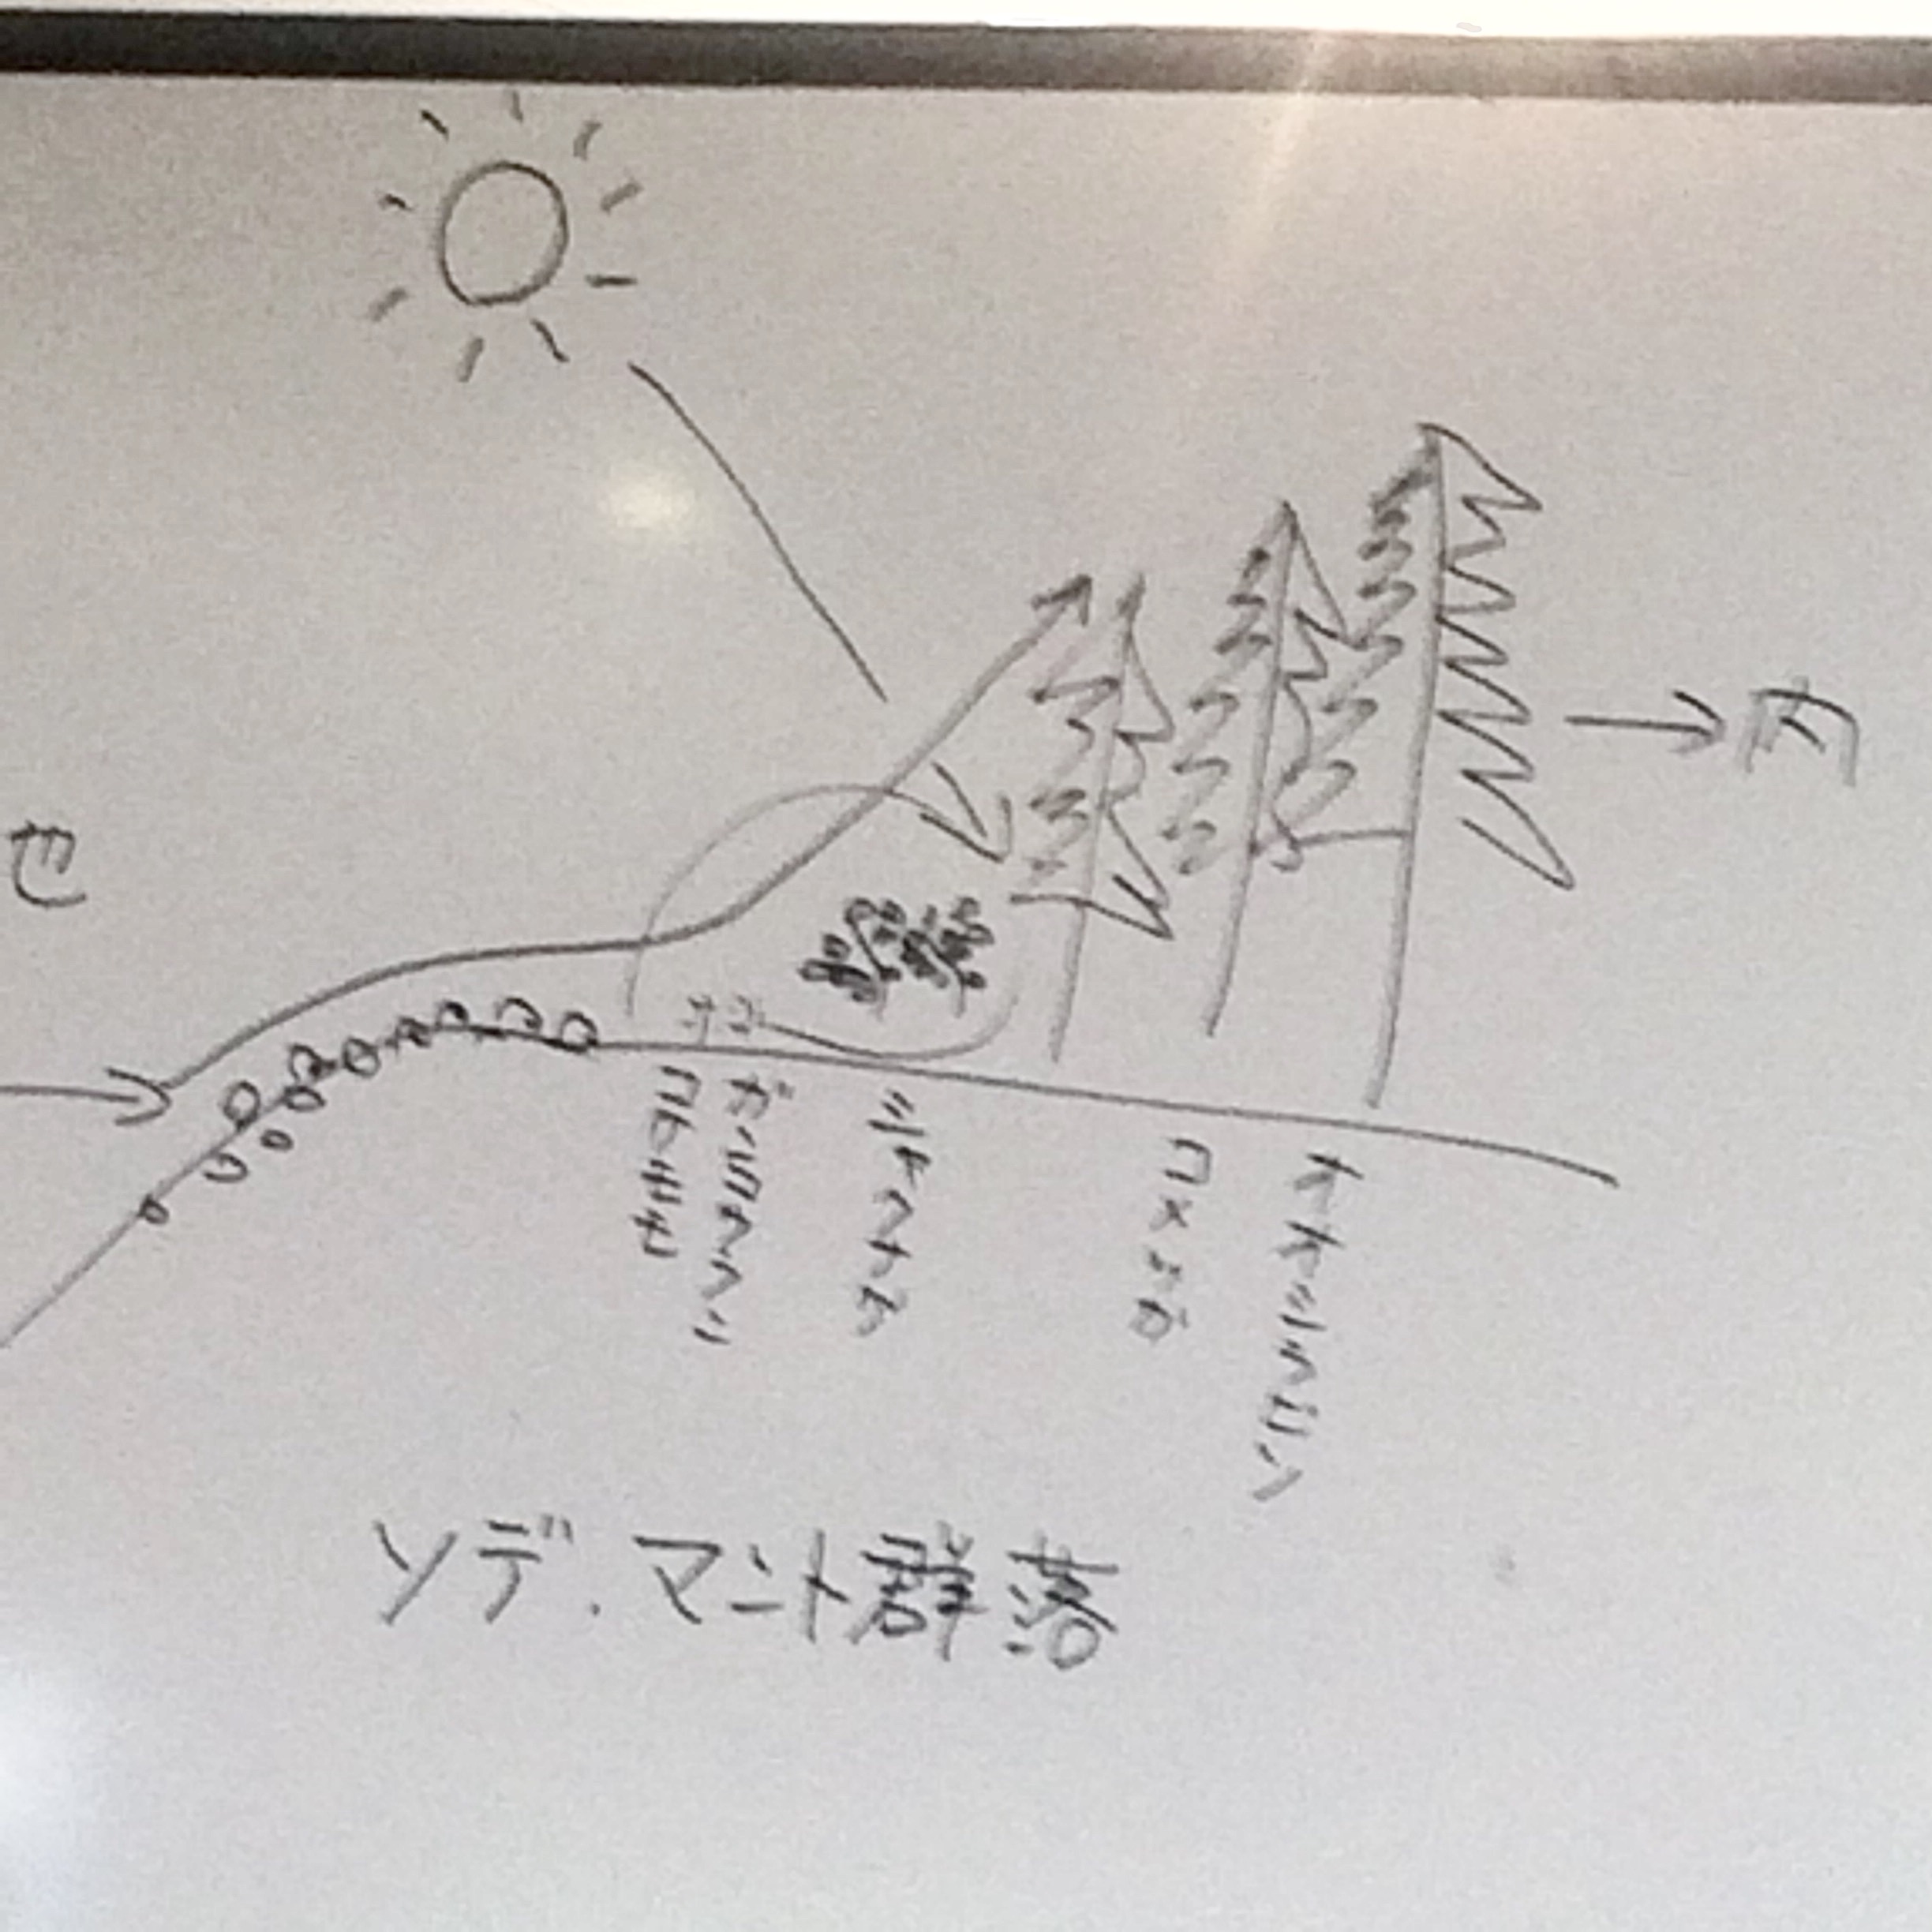 オオシラビソ
コメツガ
シャクナゲ
ガンコウラン
コケモモ
ソデ・マント群落